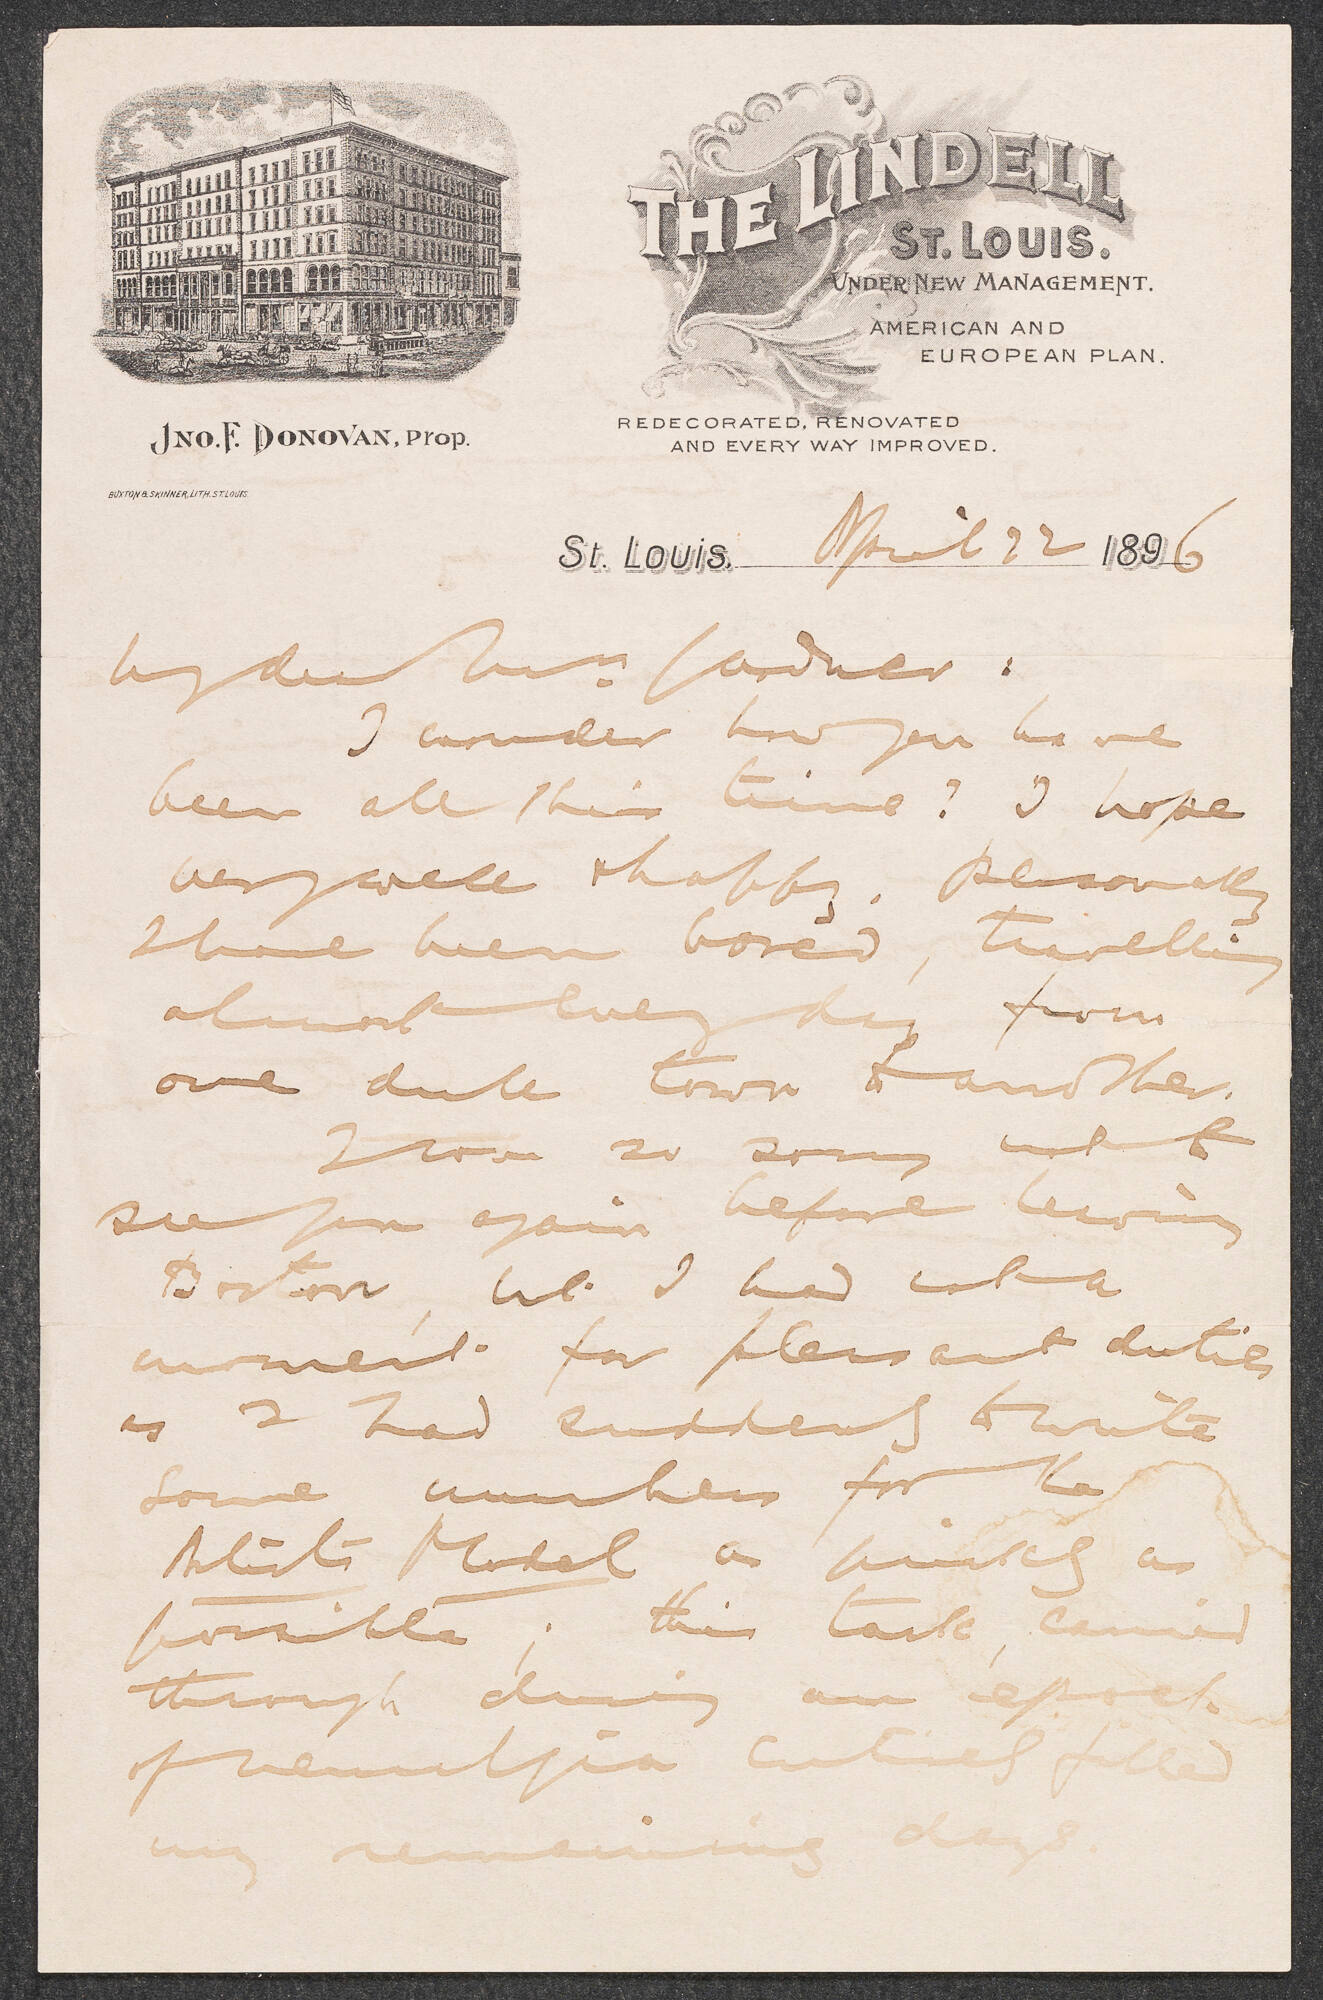 THE LINDELL
ST. LOUIS.
UNDER NEW MANAGEMENT.
AMERICAN AND
EUROPEAN PLAN.
JNO. F. DONOVAN, Prop.
REDECORATED, RENOVATED
AND EVERY WAY IMPROVED.
BUXTON & SKINNER, LITH. ST. LOUIS.
St. Louis, April 22 1896
My dear Mrs. Gardner:
I wonder how you have
been all this time? I hope
very well & happy. Personally
I have been bored, travelling
almost every day from
one dull town to another.
I was so sorry not to
see you again before leaving
Boston, but I had not a
moment for pleasant duties
as I had suddenly to write
some numbers for the
Artist's Model as quickly as
possible; this task, carried
through during an epoch
of neuralgia entirely filled
my remaining days.